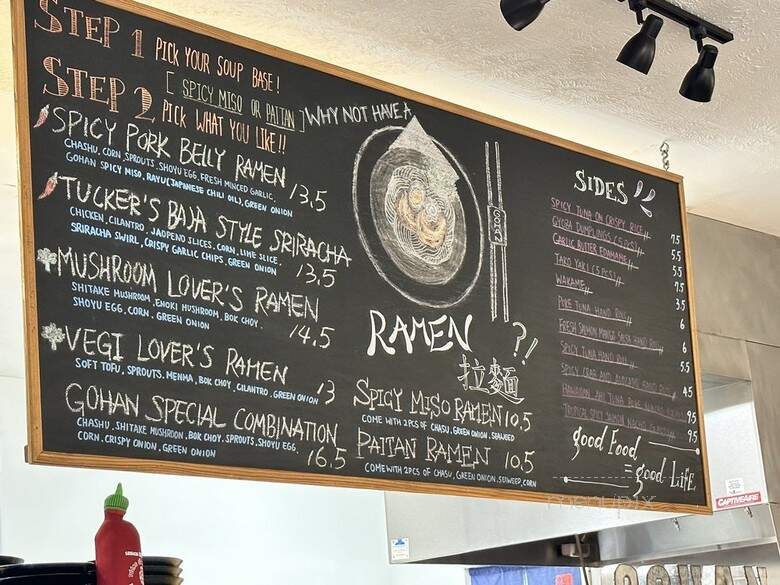 STEP 1 PICK YOUR SOUP BASE!
[ SPICY MISO OR PAITAN ]
STEP 2 PICK WHAT YOU LIKE!!
SPICY PORK BELLY RAMEN 13.5
CHASHU, CORN, SPROUTS, SHOYU EGG, FRESH MINCED GARLIC,
GOHAN SPICY MISO, RAYU (JAPANESE CHILI OIL), GREEN ONION
TUCKER'S BAJA STYLE SRIRACHA 13.5
CHICKEN, CILANTRO, JAOPENO SLICES, CORN, LIME SLICE,
SRIRACHA SWIRL, CRISPY GARLIC CHIPS, GREEN ONION
MUSHROOM LOVER'S RAMEN 14.5
SHITAKE MUSHROOM, ENOKI MUSHROOM, BOK CHOY,
SHOYU EGG, CORN, GREEN ONION
VEGI LOVER'S RAMEN 13
SOFT TOFU, SPROUTS, MENMA, BOK CHOY, CILANTRO, GREEN ONION
GOHAN SPECIAL COMBINATION 16.5
CHASHU, SHITAKE MUSHROOM, BOK CHOY, SPROUTS, SHOYU EGG,
CORN, CRISPY ONION, GREEN ONION
WHY NOT HAVE A
GOHAN
RAMEN ?!
拉麺
SPICY MISO RAMEN 10.5
COME WITH 2PCS OF CHASU, GREEN ONION,
PAITAN RAMEN 10.5
COME WITH 2PCS OF CHASU, GREEN ONION, CORN
SIDES
SPICY TUNA ON CRISPY RICE 7.5
GYOZA DUMPLINGS (5 PCS) 5.5
GARLIC BUTTER EDAMAME 5.5
TAKO YAKI (5 PCS) 7.5
WAKAME 3.5
POKE TUNA HAND ROLL 6
FRESH SALMON MANGO SALSA HAND ROLL 6
SPICY TUNA HAND ROLL 5.5
SPICY CRAB AND AVOCADO HAND ROLL 4.5
HAWAIIAN AHI TUNA 9.5
TROPICAL SPICY SALMON NACHO 9.5
good Food
= good LiFE
CAPTIVEAIRE